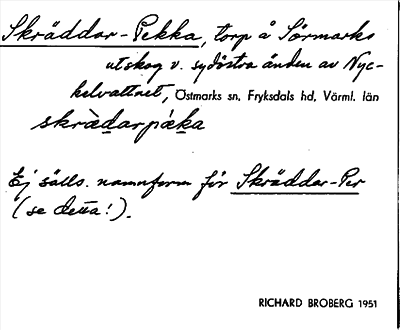 Skräddar-Pekka, torp å Sörmarks
utskog v. sydöstra änden av Nyc-
kelvattnet, Östmarks sn, Fryksdals hd, Värml. län
skrä̀darpǽka
Ej sälls. namnform för Skräddar-Per
(se detta!).
RICHARD BROBERG 1951